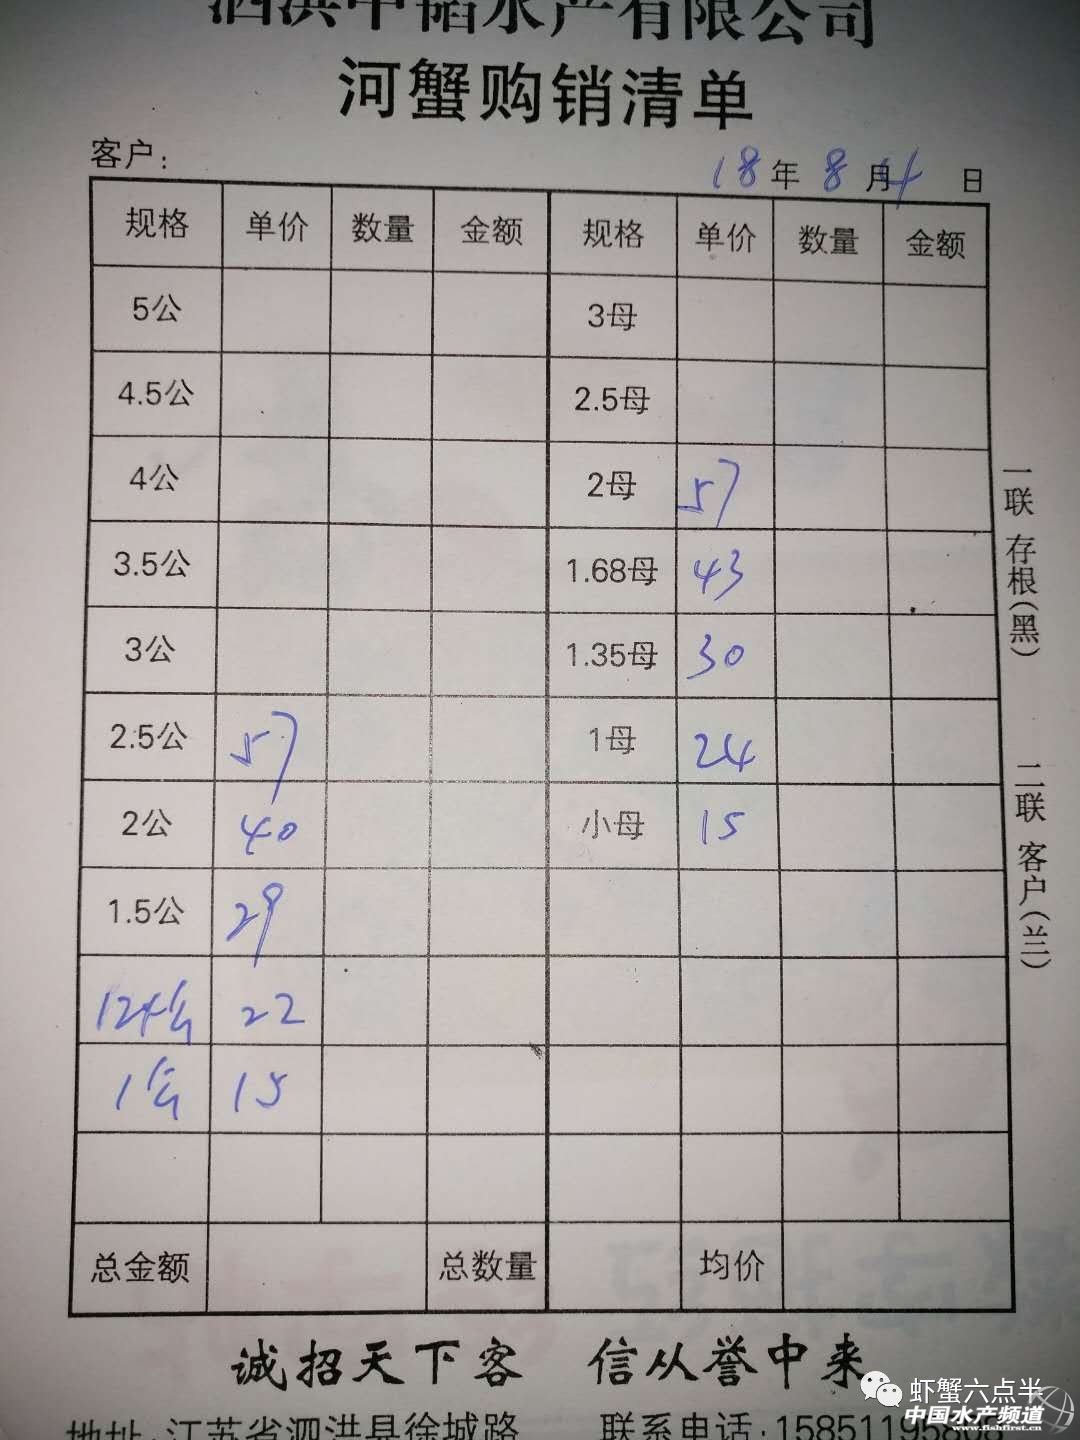 泗洪中韬水产有限公司
河蟹购销清单
客户: 18年 8月4日
规格 单价 数量 金额 规格 单价 数量 金额
5公 3母
4.5公 2.5母
4公 2母 57
3.5公 1.68母 43
3公 1.35母 30
2.5公 57 1母 24
2公 40 小母 15
1.5公 29
22
1公 15
总金额 总数量 均价
一联 存根(黑) 二联 客户(兰)
诚招天下客 信从誉中来
地址:江苏省泗洪县徐城路 联系电话:158511958
虾蟹六点半
中国水产频道
www.fishfirst.cn